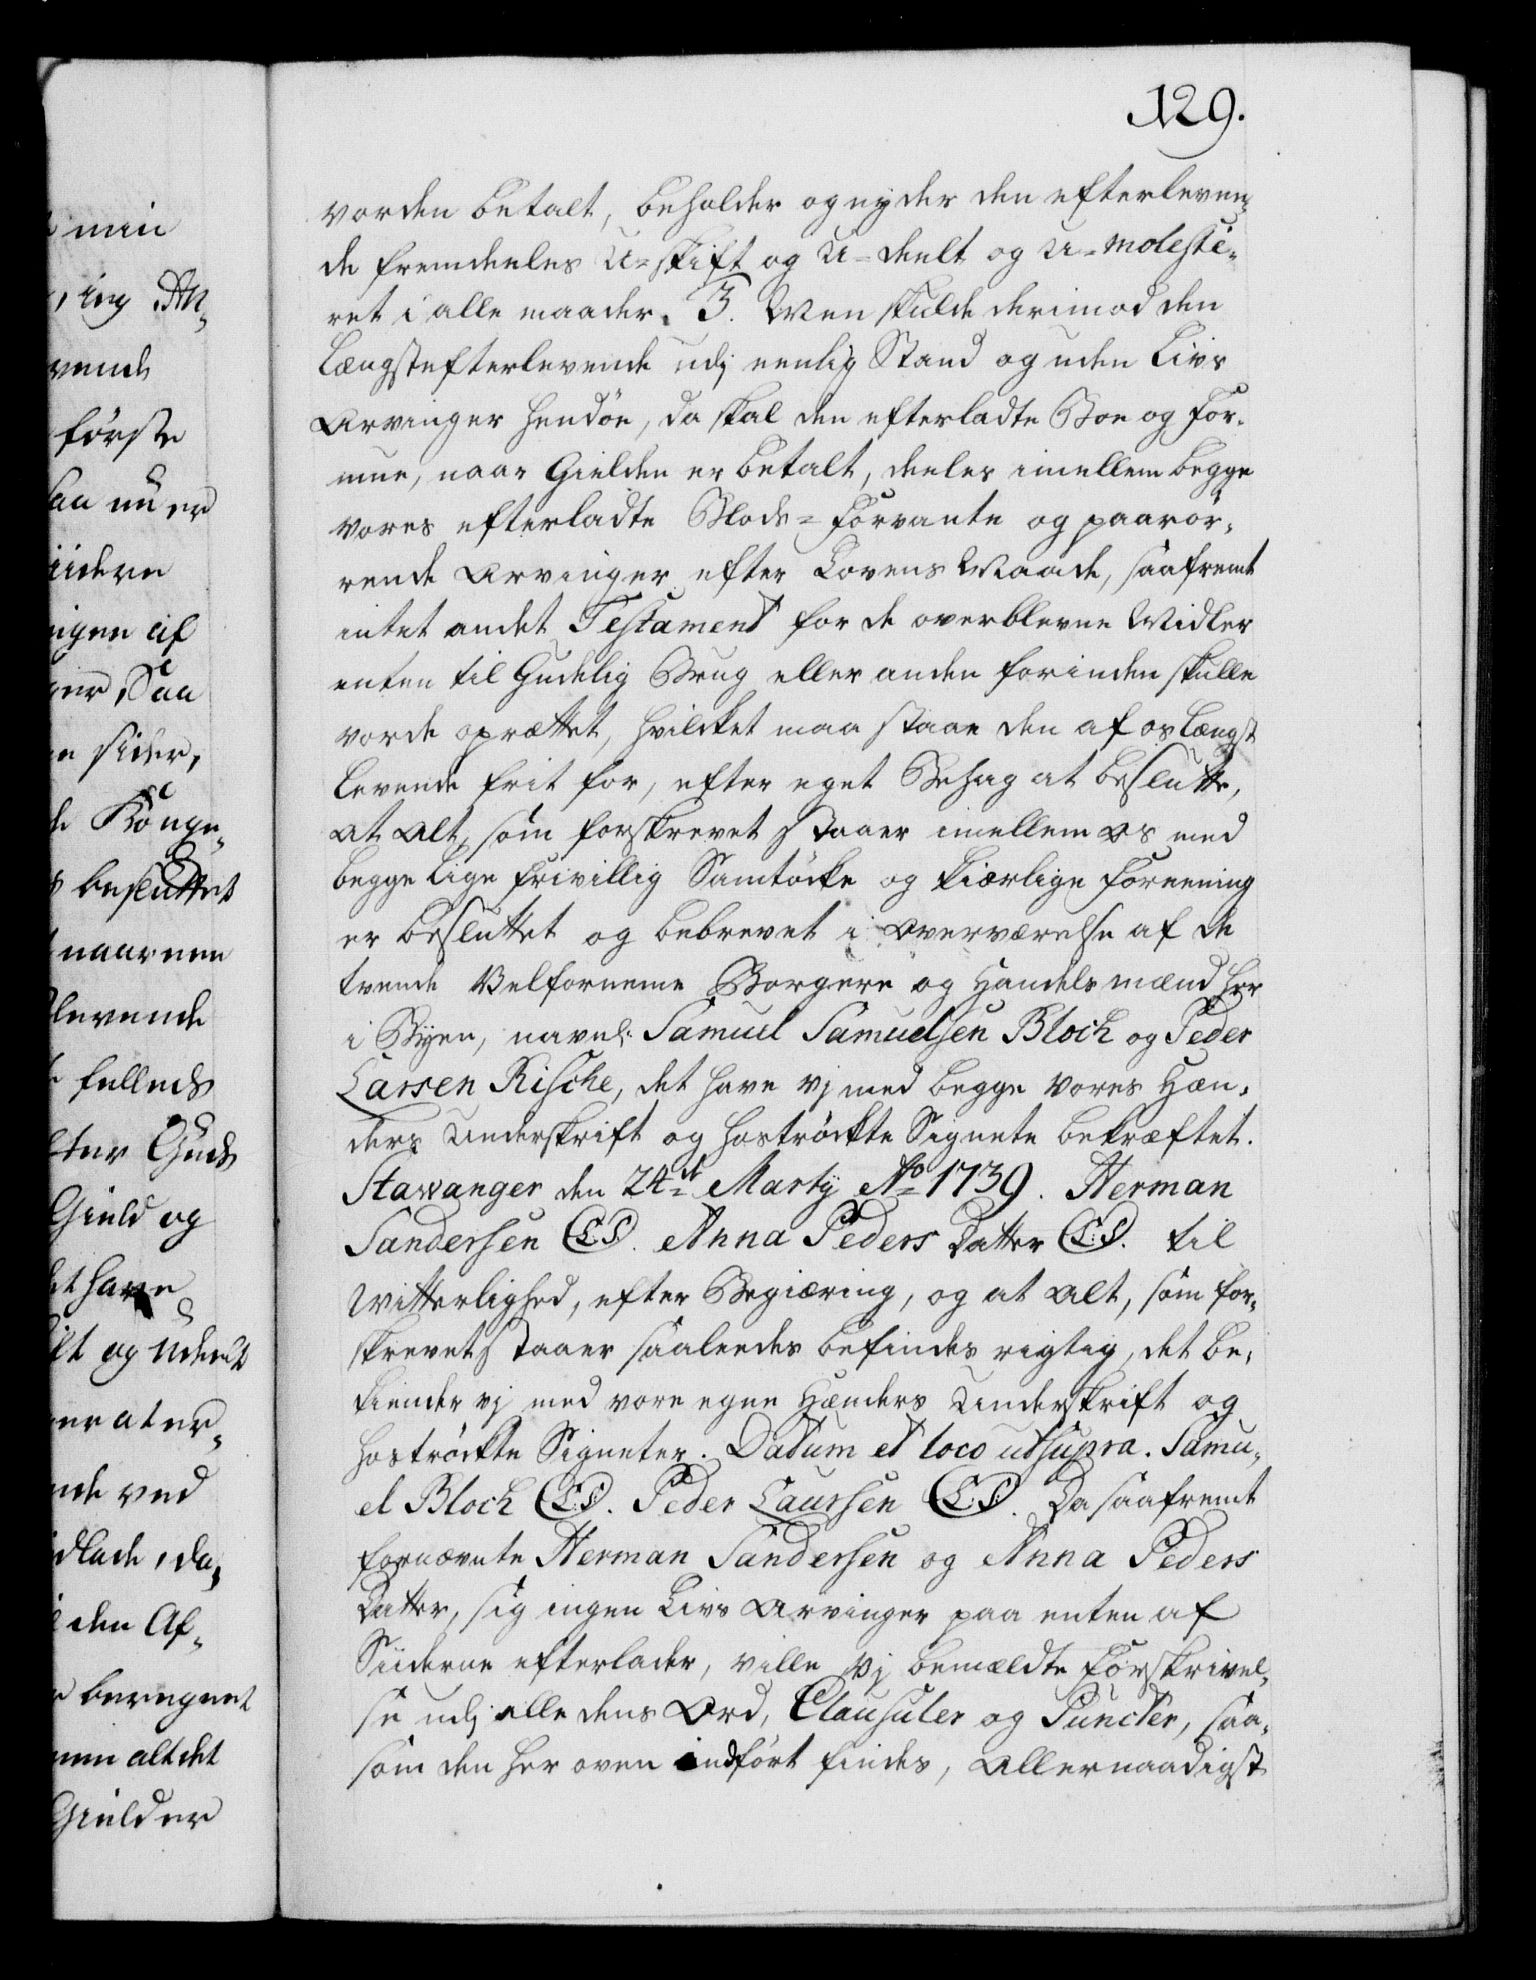 129.
vorden betalt, beholder og nyder den efterleven-
de fremdeeles U=skift og U=deelt og U=molesti-
ret i alle maader. 3. Men skulde derimod den
Længstefterlevende udj eenlig Stand og uden Livs
Arvinger hendöe, da skal den efterladte Boe og For-
mue, naar Gielden er betalt, deeles imellem begge
vores efterladte Blods=Forvante og paarör-
rende Arvinger efter Lovens Maade, saafremt
intet andet Testament for de overblevne Midler
enten til Gudelig Brug eller anden forinden skulle
vorde oprættet, hvilcket maa staae den af os Længst
levende frit for, efter eget Behag at beslutte,
At Alt, som forskrevet staaer imellem os med
begge lige frivillig Samtöcke og kiærlige Foreening
er besluttet og bebrevet i Overværelse af de
tvende Velfornemme Borgere og Handelsmænd her
i Byen, navnl: Samuel Samuelsen Bloch og Peder
Larsen Rische, det have vj med begge vores Hæn-
ders Underskrift og hoströckte Signete bekræftet.
Stavanger den 24de Martij Ao 1739. Herman
Sandersen (L.S.). Anna Peders Datter (L.S.). til
Witterlighed, efter Begiæring, og at Alt, som for-
skrevet staaer saaleedes befindes rigtig, det be-
kiender vj med vore egne Hænders Underskrift og
hoströckte Signeter. Datum et loco ut supra. Samu-
el Bloch (L.S.). Peder Laursen (L.S.). Da saafremt
fornævnte Herman Sandersen og Anna Peders
Datter, sig ingen Livs Arvinger paa enten af
Siiderne efterlader, ville Vj bemældte Forskrivel-
se udj alle dens Ord, Clausuler og Puncter, saa-
som den her oven indfört findes, Allernaadigst
min
ing An-
vende
förste
saa nu er
videre
af
Saa
sider,
Konge-
besluttet
naar en
levende
felleds
Guds
Gield og
have
og udeelt
at er-
ved
, da
den Af-
beregnet
alt det
Gielder